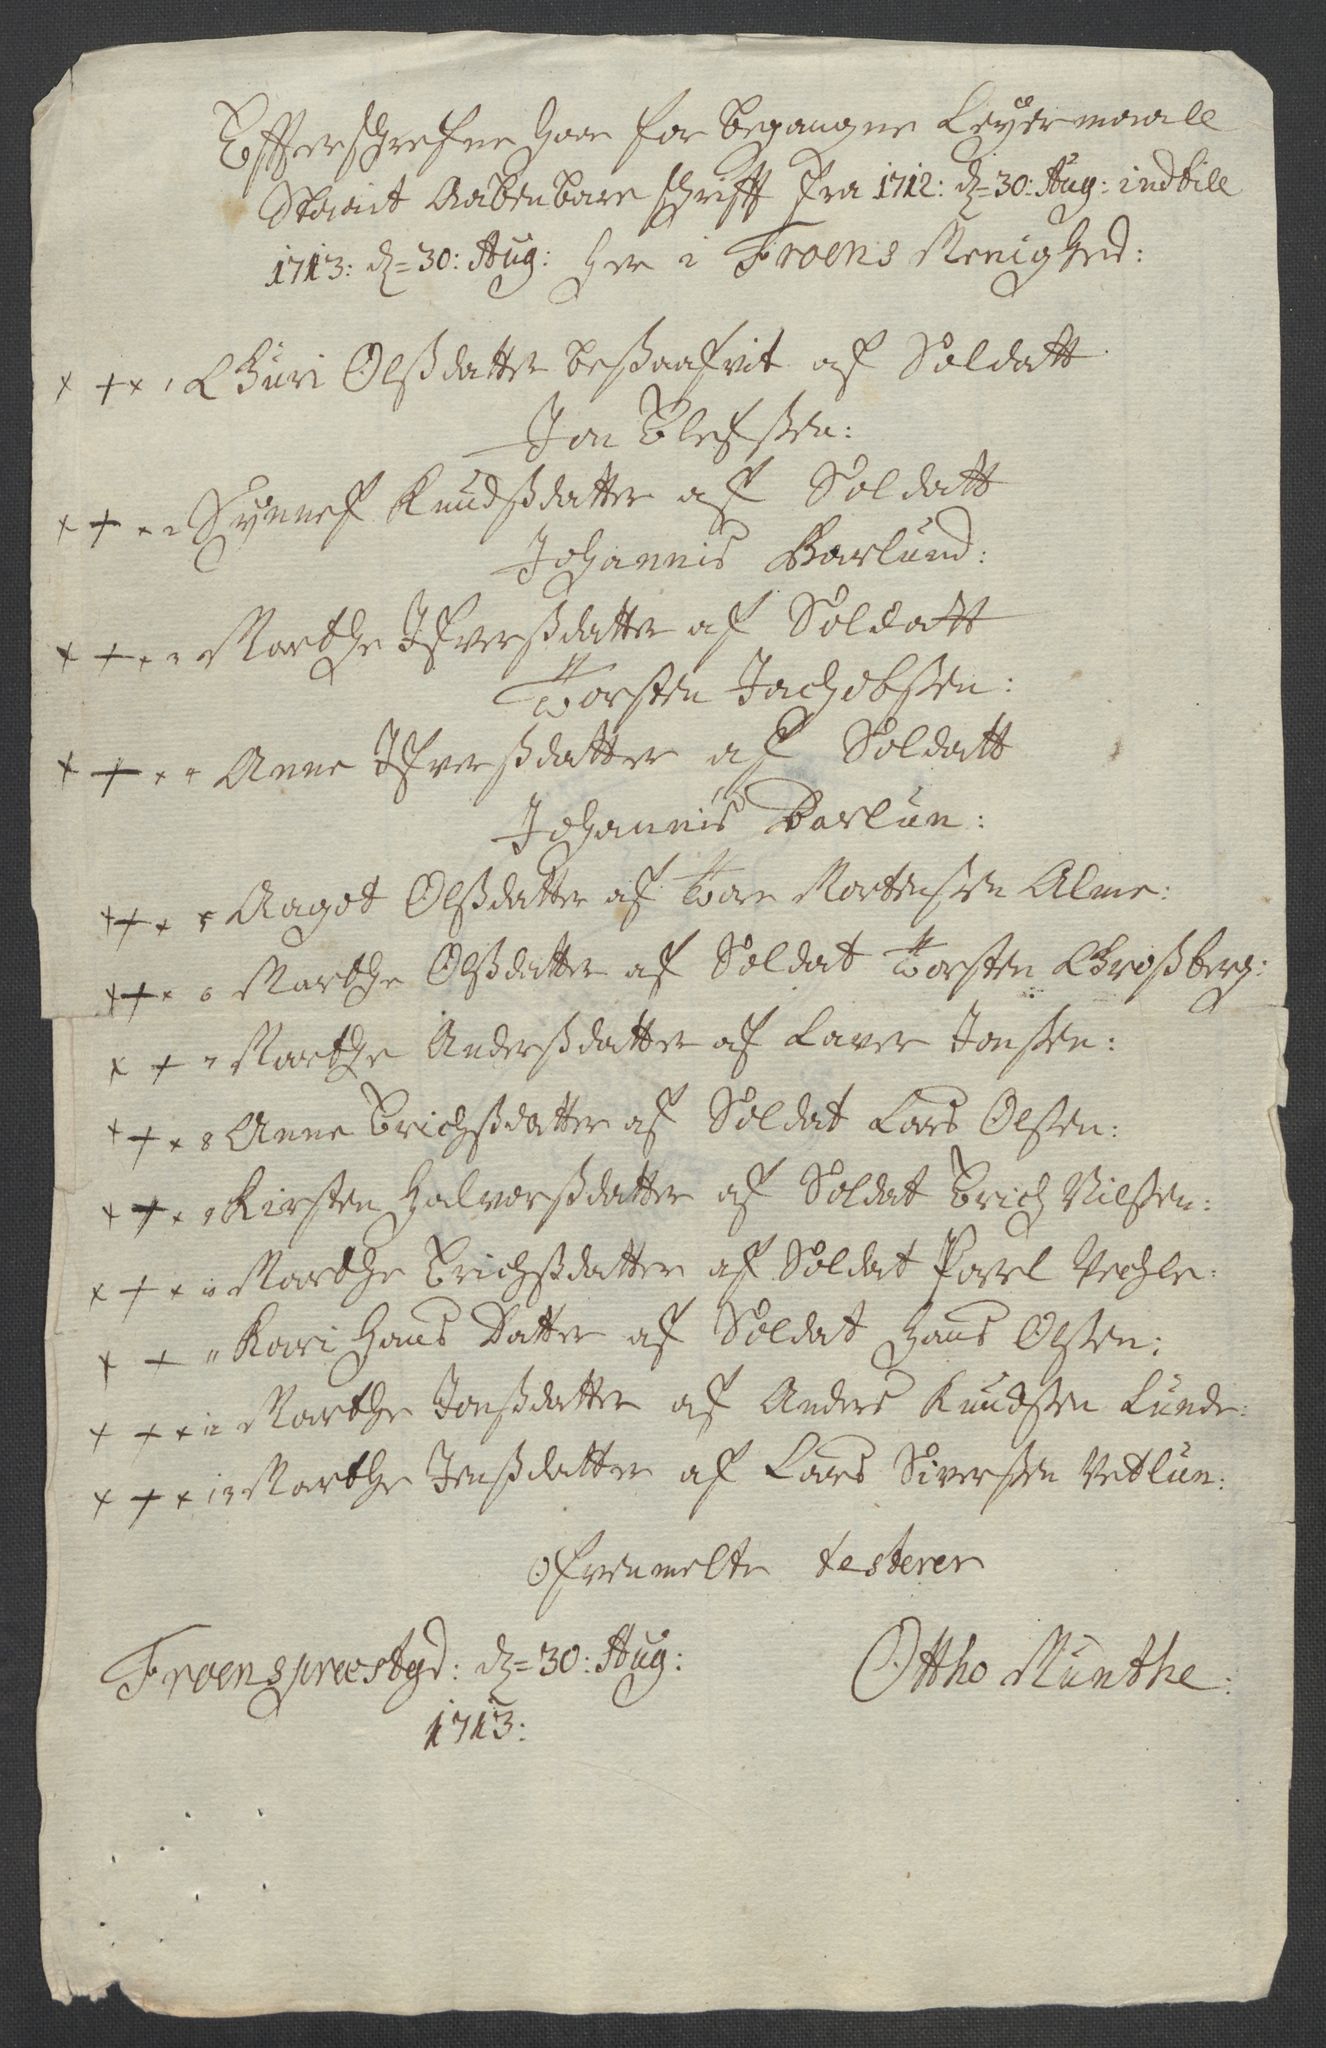 Effterschrefne haar for begangne Leyermaall
Staait Aabenbare schrifft fra 1712: dz=30: Aug: indtill
1713: dz=30: Aug: her i Froens Menighed:
× + × 1 Guri Olsdatter besaafvit af Soldatt
Jon Elefsen:
× + × 2 Synnef Knudsdatter af Soldatt
Johannis Barlund:
× + × 3 Marthe Ifversdatter af Soldatt
Torsten Jachobsen:
× + × 4 Anne Ifversdatter af Soldatt
Johannis Barlun:
× + × 5 Aagot Olsdatter af Tore Mortensen Alme:
× + × 6 Marthe Olsdatter af Soldat Torsten Grosberg:
× + 7 Marthe Andersdatter af Laver Jonsen:
× + × 8 Anne Erichsdatter af Soldat Lars Olsen:
× + × 9 Kirsten Halvorsdatter af Soldat Erich Nilsen:
× + × 10 Marthe Erichsdatter af Soldat Povel Vechle:
× + 11 Kari Hans Datter af Soldat Hans Olsen:
× + × 12 Marthe Jonsdatter af Anders Knudsen Lunde:
× + × 13 Marthe Jensdatter af Lars Siversen Vetlun:
Ofvenmelte testerer
Froens præstgd: dz=30: Aug:
1713:
Ottho Munthe: